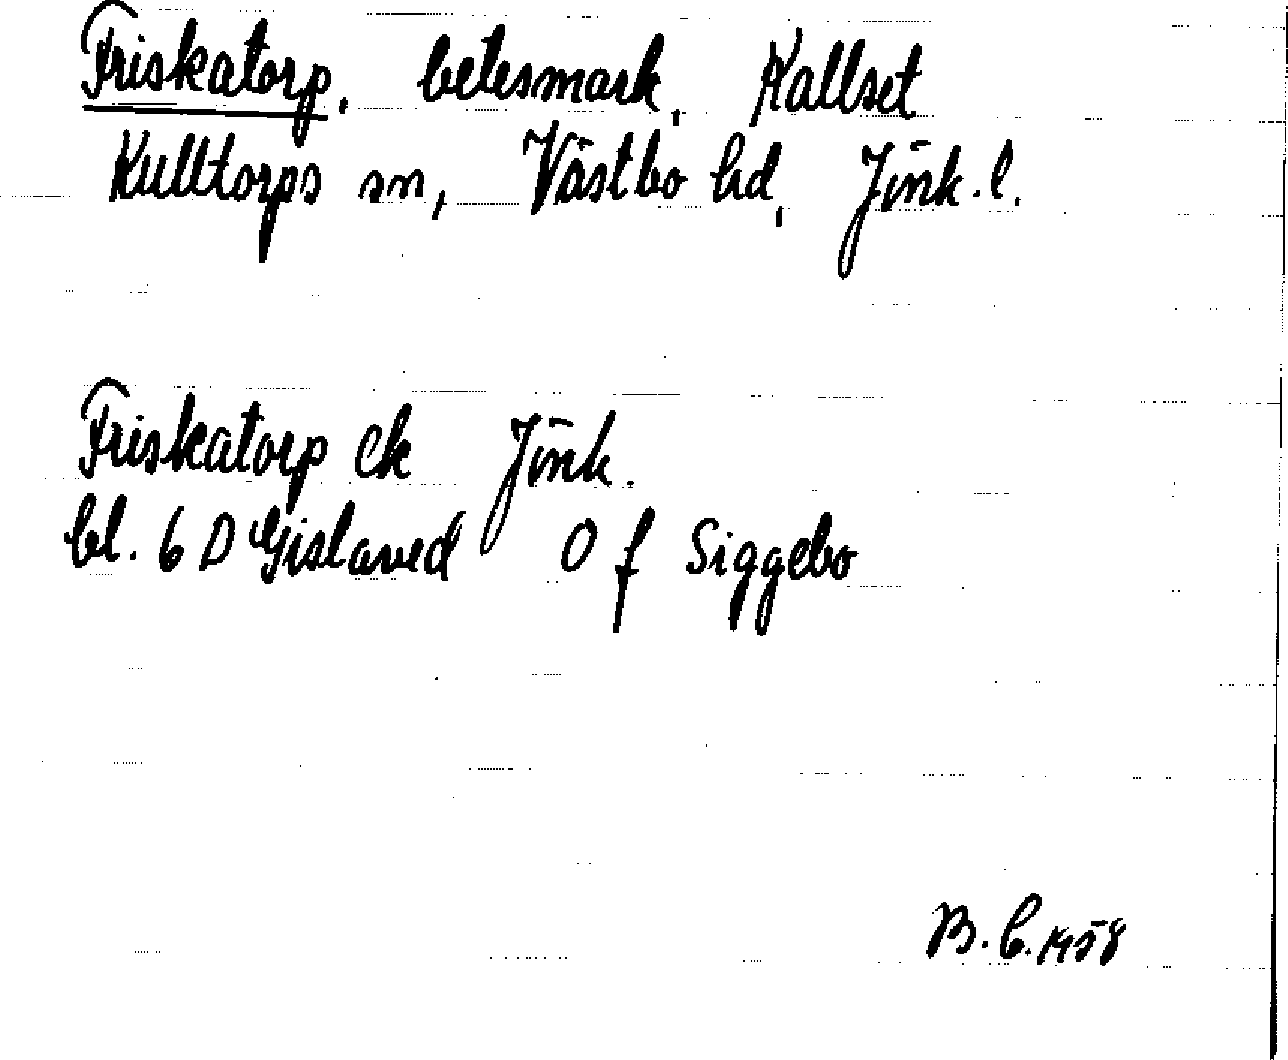 Friskatorp, betesmark, Kallset
Kulltorps sn, Västbo hd, Jönk. l.
Friskatorp ek Jönk.
bl. 6 D Gislaved O f Siggebo
B. C. 1958